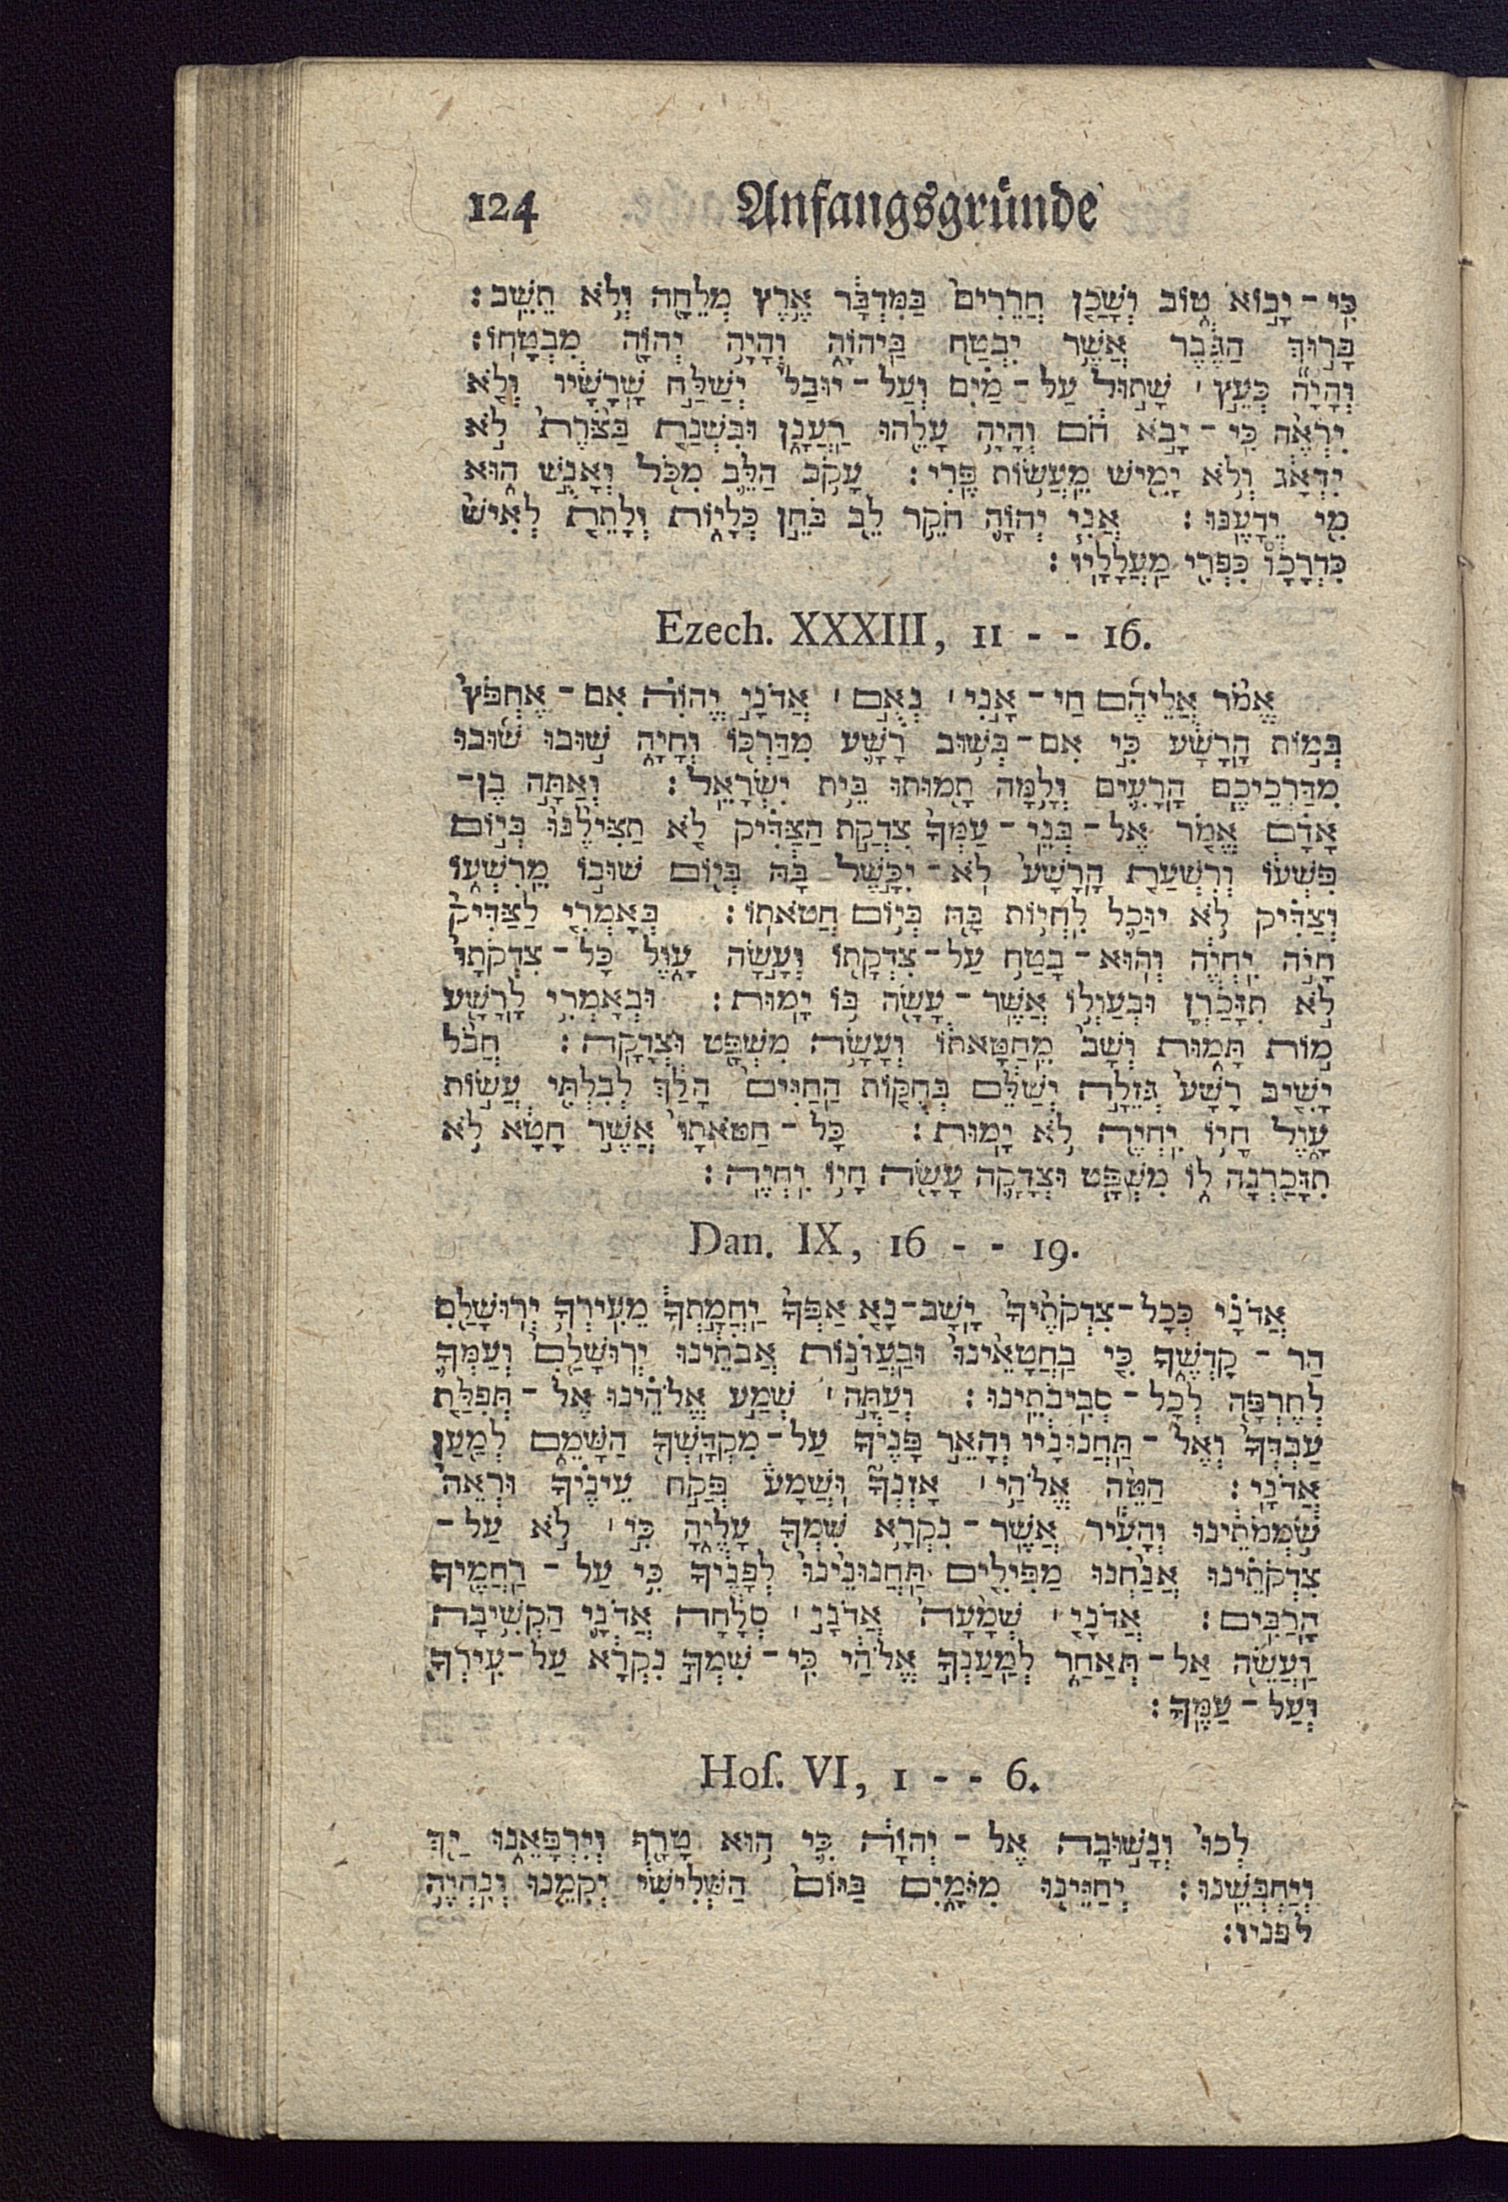 124 Anfangsgründe
כִּֽי־יָב֣וֹא ט֑וֹב וְשָׁכַ֤ן חֲרֵרִים֙ בַּמִּדְבָּ֔ר אֶ֥רֶץ מְלֵחָ֖ה וְלֹ֥א תֵשֵֽׁב׃
בָּר֣וּךְ הַגֶּ֔בֶר אֲשֶׁ֥ר יִבְטַ֖ח בַּֽיהוָ֑ה וְהָיָ֥ה יְהוָ֖ה מִבְטַחֽוֹ׃
וְהָיָ֞ה כְּעֵ֣ץ ׀ שָׁת֣וּל עַל־מַ֗יִם וְעַל־יוּבַל֙ יְשַׁלַּ֣ח שָֽׁרָשָׁ֔יו וְלֹ֤א
יִרְאֶה֙ כִּֽי־יָ֣בֹא חֹ֔ם וְהָיָ֥ה עָלֵ֖הוּ רַֽעֲנָ֑ן וּבִשְׁנַ֤ת בַּצֹּ֙רֶת֙ לֹ֣א
יִדְאָ֔ג וְלֹ֥א יָמִ֖ישׁ מֵֽעֲשׂ֥וֹת פֶּֽרִי׃ עָקֹ֥ב הַלֵּ֛ב מִכֹּ֖ל וְאָנֻ֣שׁ ה֑וּא
מִ֖י יֵדָעֶֽנּוּ׃ אֲנִ֧י יְהוָ֛ה חֹקֵ֥ר לֵ֖ב בֹּחֵ֣ן כְּלָי֑וֹת וְלָתֵ֤ת לְאִישׁ֙
כִּדְרָכָ֔ו כִּפְרִ֖י מַֽעֲלָלָֽיו׃
Ezech. XXXIII, 11 - - 16.
אֱמֹ֨ר אֲלֵיהֶ֜ם חַי־אָ֣נִי ׀ נְאֻ֣ם ׀ אֲדֹנָ֣י יֱהוִ֗ה אִם־אֶחְפֹּץ֙
בְּמ֣וֹת הָֽרָשָׁ֔ע כִּ֣י אִם־בְּשׁ֥וּב רָשָׁ֛ע מִדַּרְכּ֖וֹ וְחָיָ֑ה שׁ֣וּבוּ שׁ֜וּבוּ
מִדַּרְכֵיכֶ֧ם הָֽרָעִ֛ים וְלָ֥מָּה תָמ֖וּתוּ בֵּ֥ית יִשְׂרָאֵֽל׃ וְאַתָּ֣ה בֶן־
אָדָ֗ם אֱמֹ֤ר אֶל־בְּנֵֽי־עַמְּךָ֙ צִדְקַ֣ת הַצַּדִּ֗יק לֹ֤א תַצִּילֶ֙נּוּ֙ בְּי֣וֹם
פִּשְׁע֔וֹ וְרִשְׁעַ֤ת הָֽרָשָׁע֙ לֹֽא־יִכָּ֣שֶׁל בָּ֔הּ בְּי֖וֹם שׁוּב֣וֹ מֵֽרִשְׁע֑וֹ
וְצַדִּ֗יק לֹ֥א יוּכַ֛ל לִֽחְי֥וֹת בָּ֖הּ בְּי֥וֹם חֲטֹאתֽוֹ׃ בְּאָמְרִ֤י לַצַּדִּיק֙
חָיֹ֣ה יִֽחְיֶ֔ה וְהֽוּא־בָטַ֥ח עַל־צִדְקָת֖וֹ וְעָ֣שָׂה עָ֑וֶל כָּל־צִדְקֹתָו֙
לֹ֣א תִזָּכַ֔רְןָ וּבְעַוְל֥וֹ אֲשֶׁר־עָשָׂ֖ה בּ֥וֹ יָמֽוּת׃ וּבְאָמְרִ֥י לָֽרָשָׁ֖ע
מ֣וֹת תָּמ֑וּת וְשָׁב֙ מֵֽחַטָּאת֔וֹ וְעָשָׂ֥ה מִשְׁפָּ֖ט וּצְדָקָֽה׃ חֲבֹ֨ל
יָשִׁ֤יב רָשָׁע֙ גְּזֵלָ֣ה יְשַׁלֵּ֔ם בְּחֻקּ֤וֹת הַֽחַיִּים֙ הָלַ֔ךְ לְבִלְתִּ֖י עֲשׂ֣וֹת
עָ֑וֶל חָי֥וֹ יִֽחְיֶ֖ה לֹ֥א יָמֽוּת׃ כָּל־חַטֹּאתָו֙ אֲשֶׁ֣ר חָטָ֔א לֹ֥א
תִזָּכַ֖רְנָה ל֑וֹ מִשְׁפָּ֧ט וּצְדָקָ֛ה עָשָׂ֖ה חָי֥וֹ יִֽחְיֶֽה׃
Dan. IX, 16 - - 19.
אֲדֹנָ֗י כְּכָל־צִדְקֹתֶ֙יךָ֙ יָֽשָׁב־נָ֤א אַפְּךָ֙ וַֽחֲמָ֣תְךָ֔ מֵעִֽירְךָ֥ יְרֽוּשָׁלִַ֖ם
הַר־קָדְשֶׁ֑ךָ כִּ֤י בַֽחֲטָאֵ֙ינוּ֙ וּבַֽעֲוֺנ֣וֹת אֲבֹתֵ֔ינוּ יְרֽוּשָׁלִַ֧ם וְעַמְּךָ֛
לְחֶרְפָּ֖ה לְכָל־סְבִֽיבֹתֵֽינוּ׃ וְעַתָּ֣ה ׀ שְׁמַ֣ע אֱלֹהֵ֗ינוּ אֶל־תְּפִלַּ֤ת
עַבְדְּךָ֙ וְאֶל־תַּ֣חֲנוּנָ֔יו וְהָאֵ֣ר פָּנֶ֔יךָ עַל־מִקְדָּשְׁךָ֖ הַשָּׁמֵ֑ם לְמַ֖עַן
אֲדֹנָֽי׃ הַטֵּ֨ה אֱלֹהַ֥י ׀ אָזְנְךָ֮ וּֽשֲׁמָע֒ פְּקַ֣ח עֵינֶ֗יךָ וּרְאֵה֙
שֹֽׁמְמֹתֵ֔ינוּ וְהָעִ֕יר אֲשֶׁר־נִקְרָ֥א שִׁמְךָ֖ עָלֶ֑יהָ כִּ֣י ׀ לֹ֣א עַל־
צִדְקֹתֵ֗ינוּ אֲנַ֨חְנוּ מַפִּילִ֤ים תַּֽחֲנוּנֵ֙ינוּ֙ לְפָנֶ֔יךָ כִּ֖י עַל־רַֽחֲמֶ֥יךָ
הָֽרַבִּֽים׃ אֲדֹנָ֤י ׀ שְׁמָ֙עָה֙ אֲדֹנָ֣י ׀ סְלָ֔חָה אֲדֹנָ֛י הַקְשִׁ֥יבָה
וַֽעֲשֵׂ֖ה אַל־תְּאַחַ֑ר לְמַֽעַנְךָ֣ אֱלֹהַ֔י כִּֽי־שִׁמְךָ֣ נִקְרָ֔א עַל־עִֽירְךָ֖
וְעַל־עַמֶּֽךָ׃
Hoſ. VI, 1 - - 6.
לְכוּ֙ וְנָשׁ֣וּבָה אֶל־יְהוָ֔ה כִּ֛י ה֥וּא טָרָ֖ף וְיִרְפָּאֵ֑נוּ יַ֖ךְ
וְיַחְבְּשֵֽׁנוּ׃ יְחַיֵּ֖נוּ מִיֹּמָ֑יִם בַּיּוֹם֙ הַשְּׁלִישִׁ֔י יְקִמֵ֖נוּ וְנִֽחְיֶ֥ה
לפניו׃